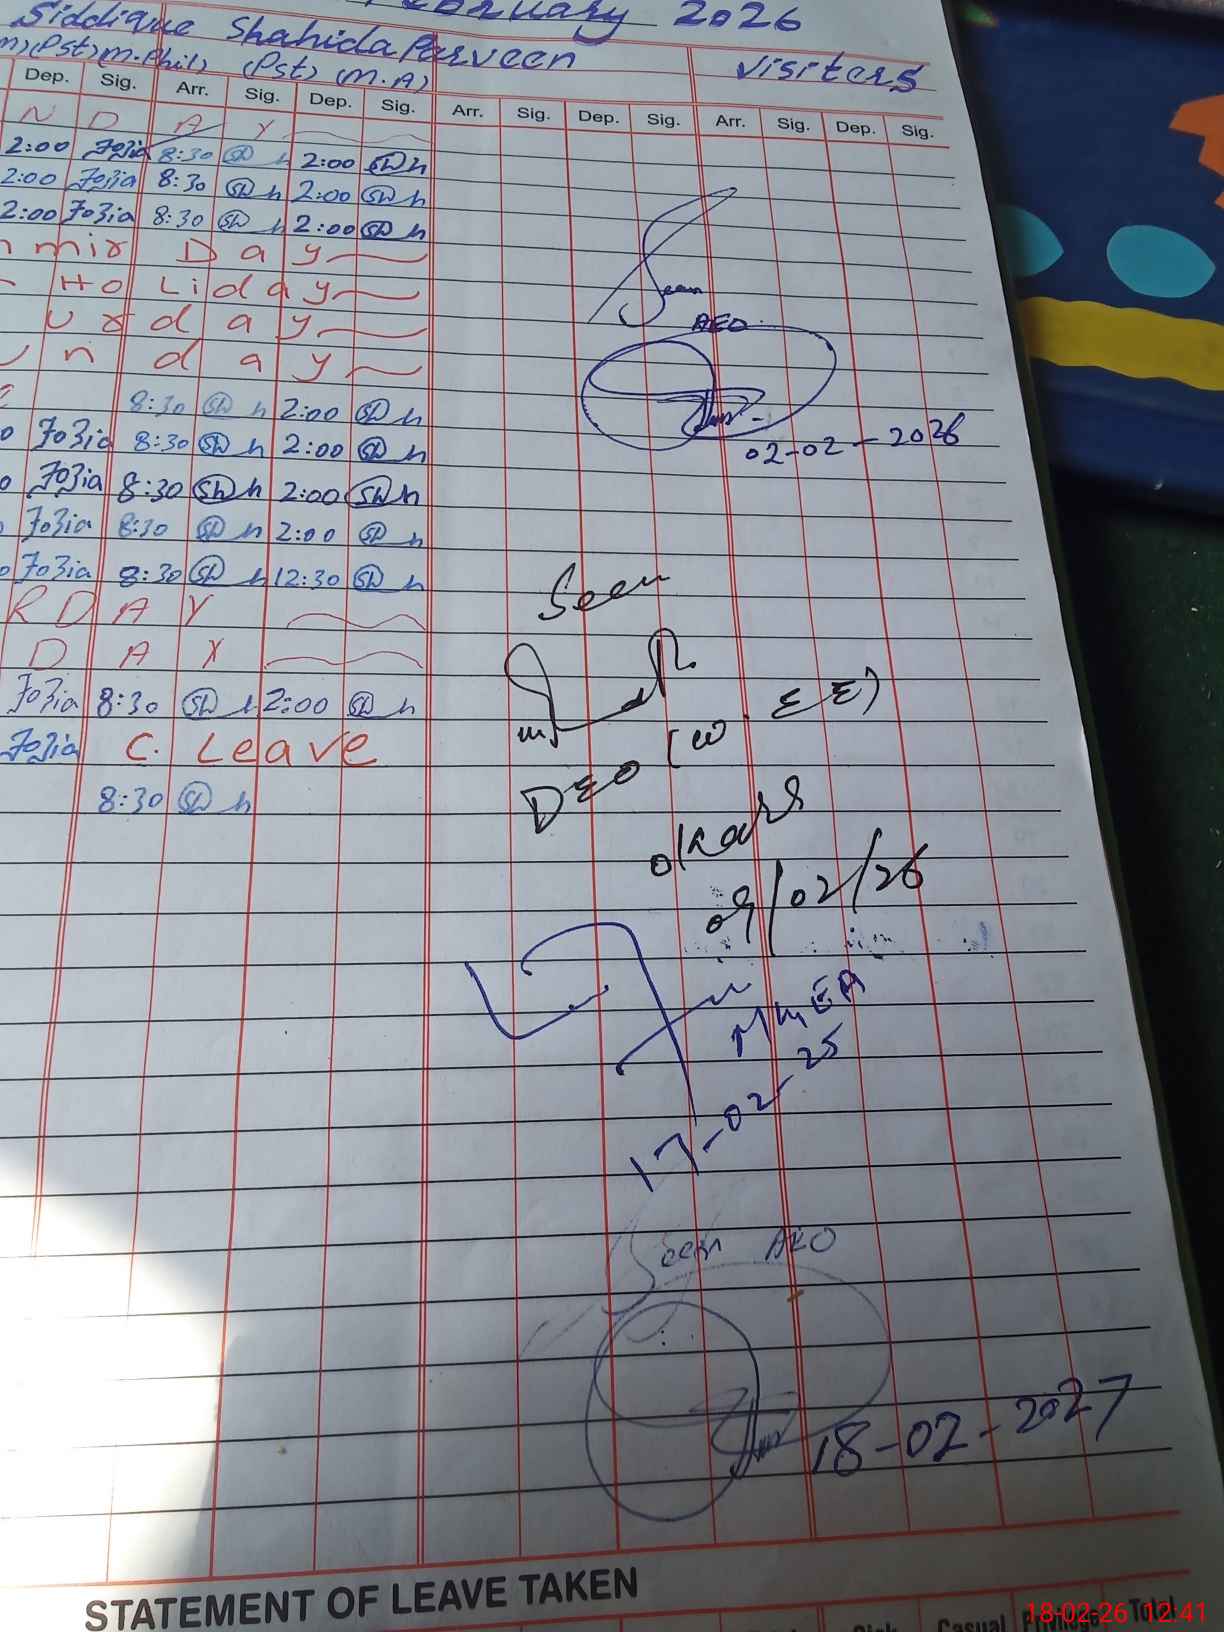 February 2026
Siddique Shahida Parveen Visiters
(Pst) (M.Phil) (Pst) (M.A)
Dep. Sig. Arr. Sig. Dep. Sig. Arr. Sig. Dep. Sig. Arr. Sig. Dep. Sig.
N D A Y
2:00 Fozia 8:30 Sh 2:00 Sh
2:00 Fozia 8:30 Sh 2:00 Sh
2:00 Fozia 8:30 Sh 2:00 Sh
mir Day
Holiday
urday
un day
8:30 Sh 2:00 Sh
Fozia 8:30 Sh 2:00 Sh
Fozia 8:30 Sh 2:00 Sh
Fozia 8:30 Sh 2:00 Sh
Fozia 8:30 Sh 12:30 Sh
R D A Y
D A Y
Fozia 8:30 Sh 2:00 Sh
Fozia C. Leave
8:30 Sh
Seen
AEO
02-02-2026
Seen
DEO (W.EE)
Okara
09/02/26
MEA
17-02-25
Seen AEO
18-02-2027
STATEMENT OF LEAVE TAKEN
Sick Casual Privilege Total
18-02-26 12:41